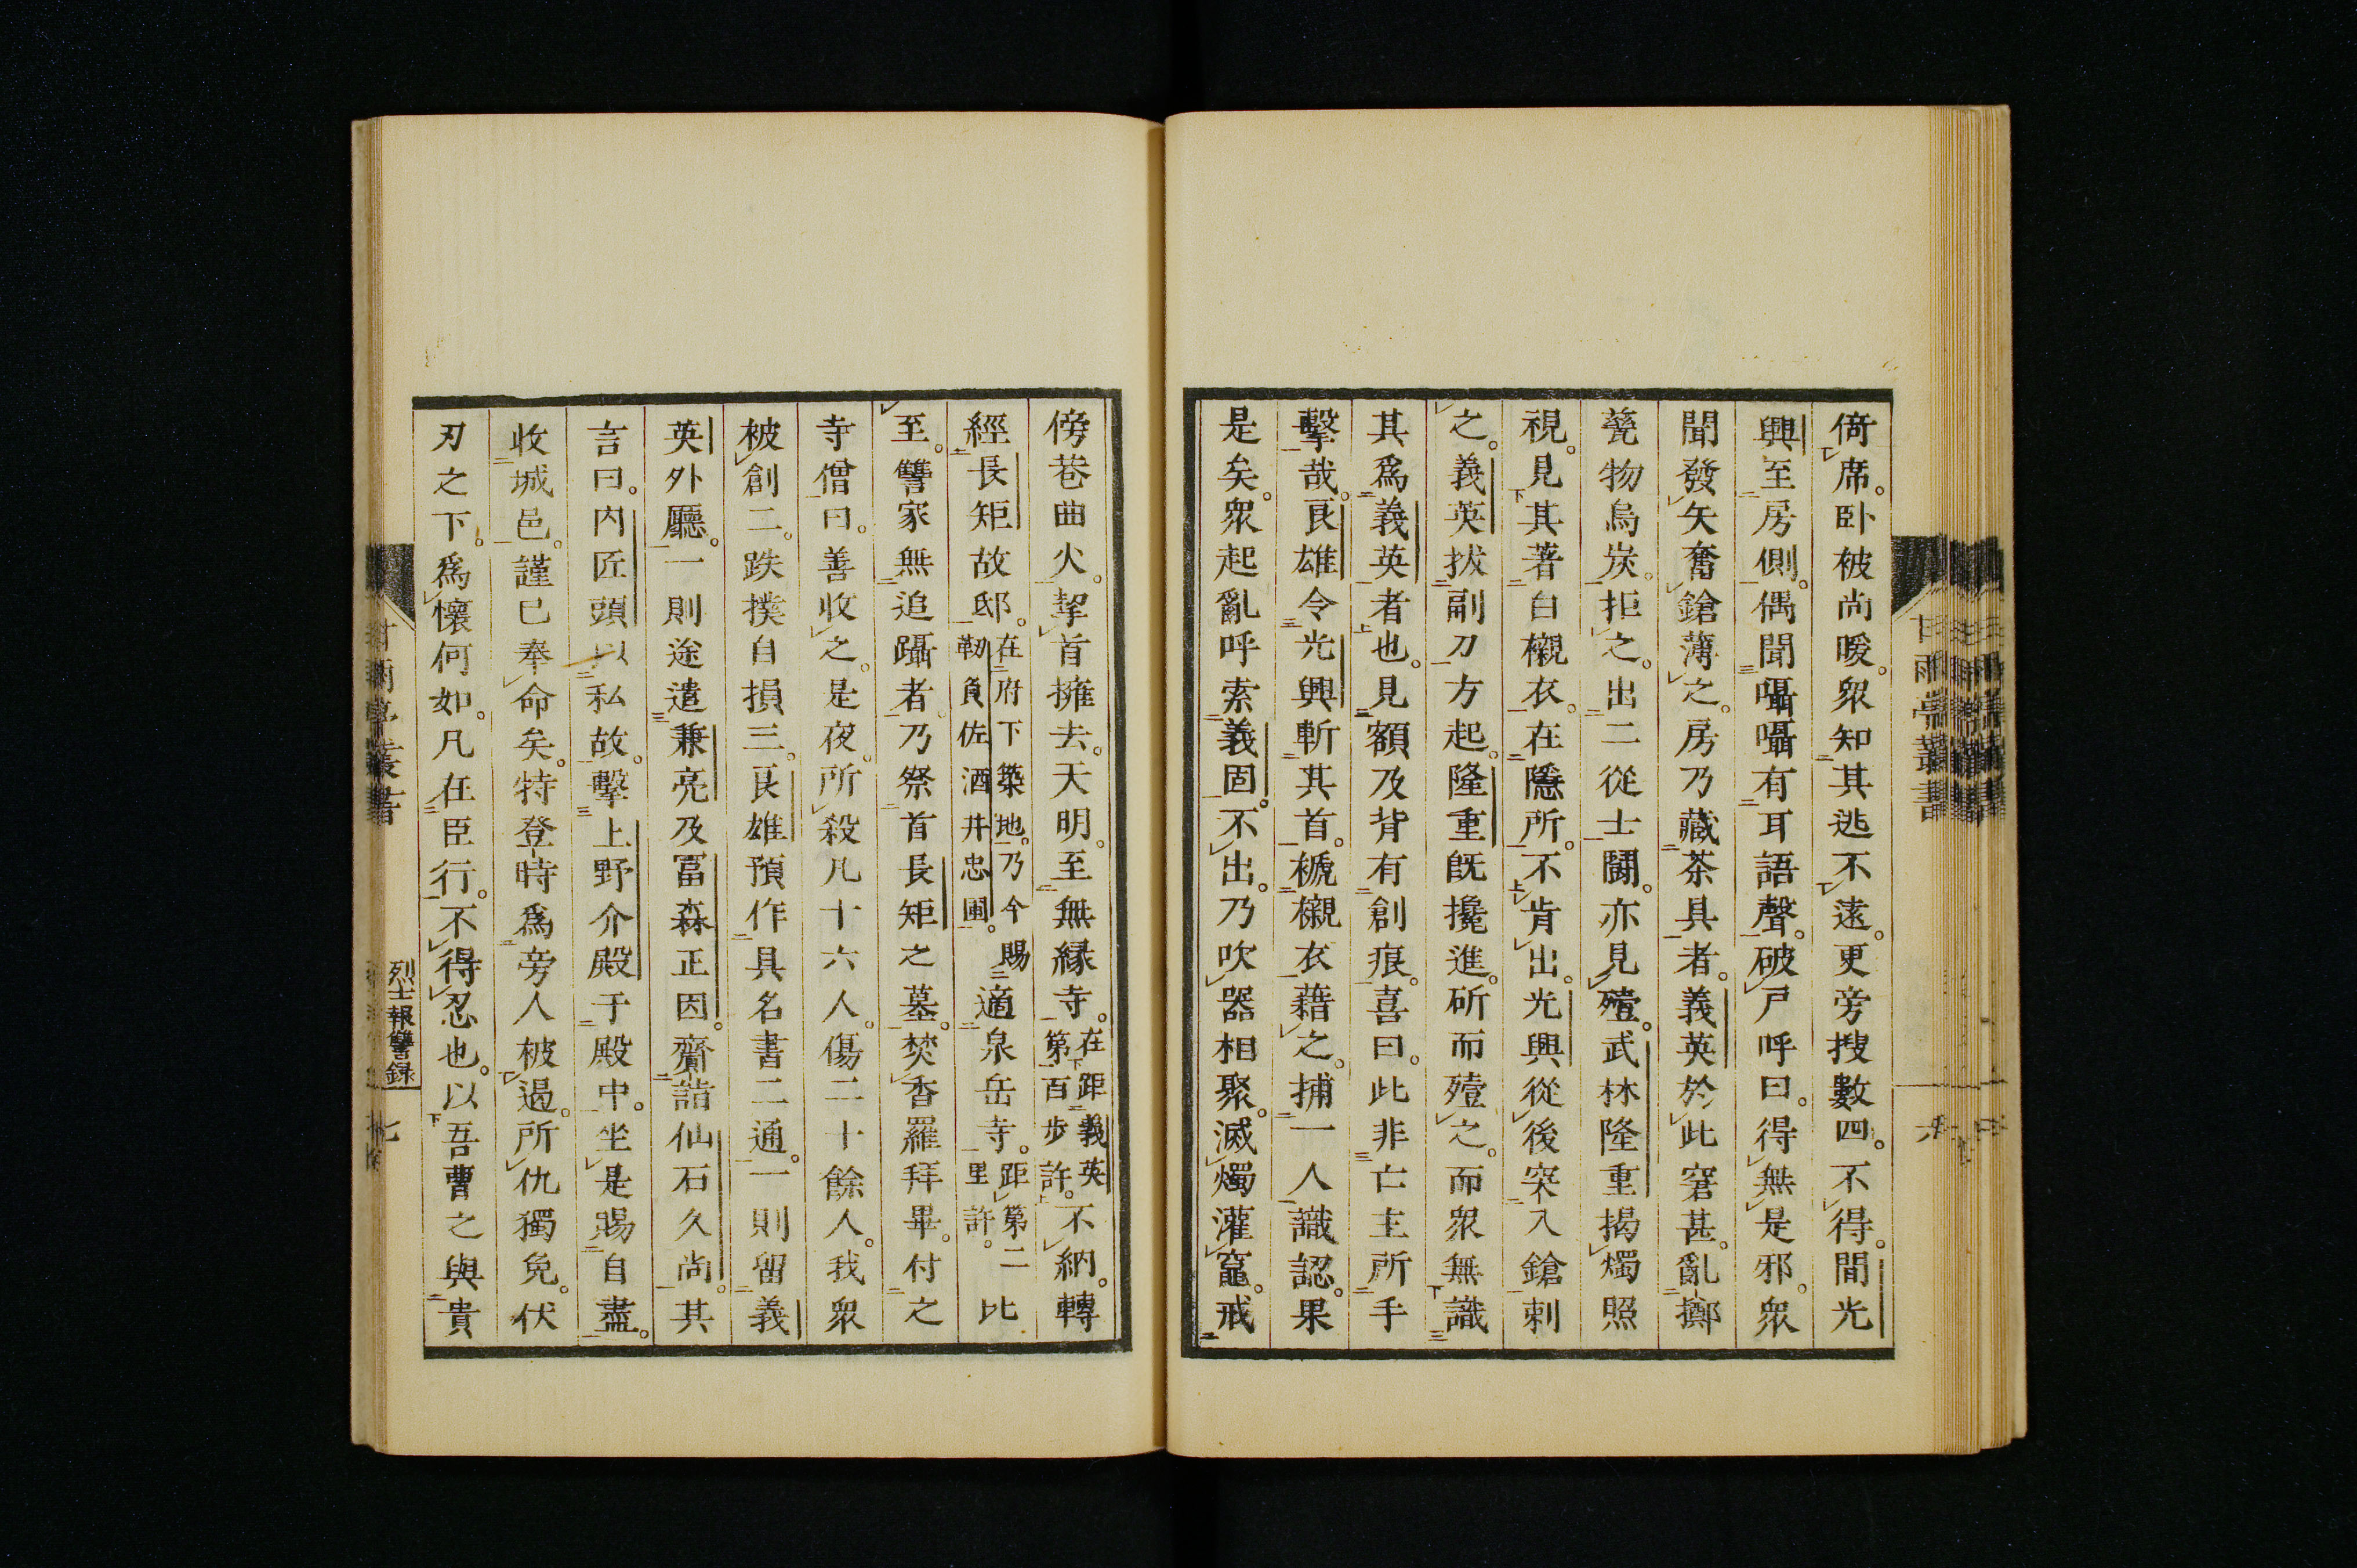 倚席。卧被尚暖。衆知其逃不遠。更旁搜數四。不得。間光
興至房側。偶聞囁囁有耳語聲。破戸呼曰。得無是邪。衆
聞發矢奮鎗薄之。房乃藏茶具者。義英於此窘甚。亂擲
甆物烏炭。拒之。出二從士鬪。亦見殪。武林隆重揭燭照
視。見其著白襯衣。在隱所。不肯出。光興從後突入鎗刺
之。義英拔副刀方起。隆重既攙進。斫而殪之。而衆無識
其爲義英者也。見額及背有創痕。喜曰。此非亡主所手
擊哉。良雄令光興斬其首。褫襯衣藉之。捕一人識認。果
是矣。衆起亂呼索義固。不出。乃吹器相聚。滅燭灌竈。戒
傍巷曲火。挈首擁去。天明。至無縁寺。在距義英第百步許。不納。轉
經長矩故邸。在府下築地。乃今賜勒負佐酒井忠圍。適泉岳寺。距第二里許。比
至。讐家無追躡者。乃祭首長矩之墓。焚香羅拜畢。付之
寺僧曰。善收之。是夜。所殺凡十六人。傷二十餘人。我衆
被創二。跌撲自損三。良雄預作具名書二通。一則留義
英外廳。一則途遣兼亮及冨森正因。齎詣仙石久尚。其
言曰。内匠頭以私故。擊上野介殿于殿中。坐是賜自盡。
收城邑。謹已奉命矣。特登時爲旁人被遏。所仇獨免。伏
刃之下。爲懷何如。凡在臣行。不得忍也。以吾曹之與貴
甘雨亭叢書
六
烈士報讐録
七